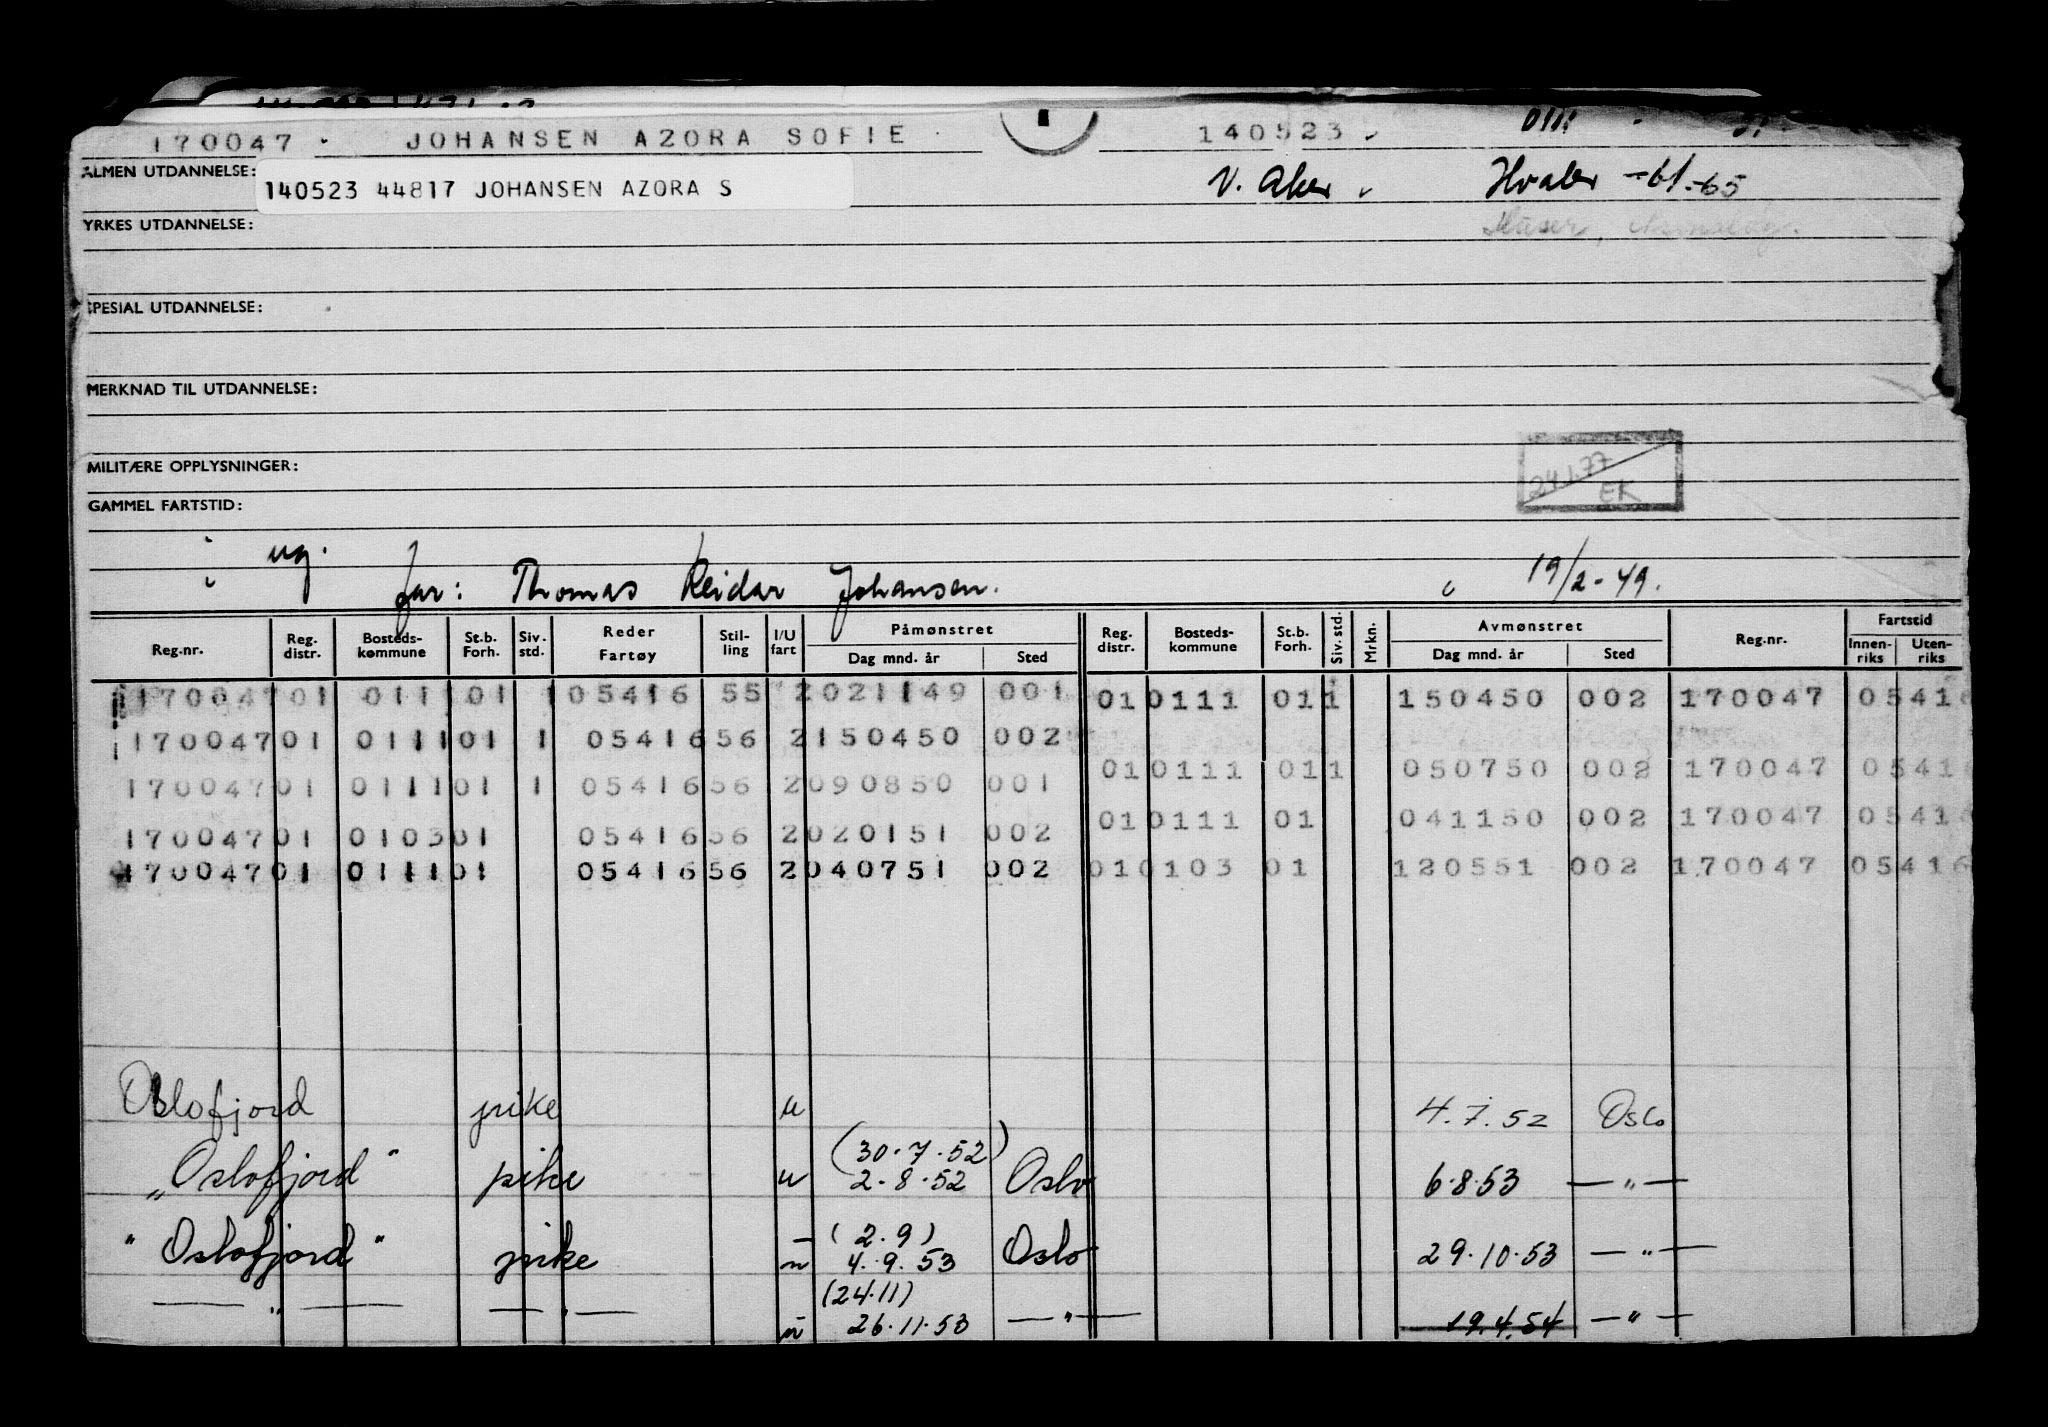 170047 · JOHANSEN AZORA SOFIE 140523
ALMEN UTDANNELSE: 140523 44817 JOHANSEN AZORA S V. Aker Hvaler -61.-65
YRKES UTDANNELSE:
SPESIAL UTDANNELSE:
MERKNAD TIL UTDANNELSE:
MILITÆRE OPPLYSNINGER: 24.1.77
EK
GAMMEL FARTSTID:
ug.
far: Thomas Reidar Johansen. 19/2-49.
Reg.nr. Reg. distr. Bosteds-kommune St.b. Forh. Siv. std. Reder Fartøy Stil-ling I/U fart Påmønstret Dag mnd. år Sted Reg. distr. Bosteds-kommune St.b. Forh. Siv. std. Mrkn. Avmønstret Dag mnd. år Sted Reg.nr. Fartstid Innen-riks Uten-riks
170047 01 0111 01 1 05416 55 2 021149 001 01 0111 01 1 150450 002 170047 05416
170047 01 0111 01 1 05416 56 2 150450 002
01 0111 01 1 050750 002 170047 05416
170047 01 0111 01 1 05416 56 2 090850 001
01 0111 01 041150 002 170047 05416
170047 01 0103 01 05416 56 2 020151 002
170047 01 0111 01 05416 56 2 040751 002 01 0103 01 120551 002 170047 05416
Oslofjord pike u 4.7.52 Oslo
(30.7.52)
„Oslofjord" pike u 2.8.52 Oslo 6.8.53 — " —
(2.9)
"Oslofjord" pike u 4.9.53 Oslo 29.10.53 — " —
(24.11)
— " — — " — u 26.11.53 — " — 19.4.54 — " —